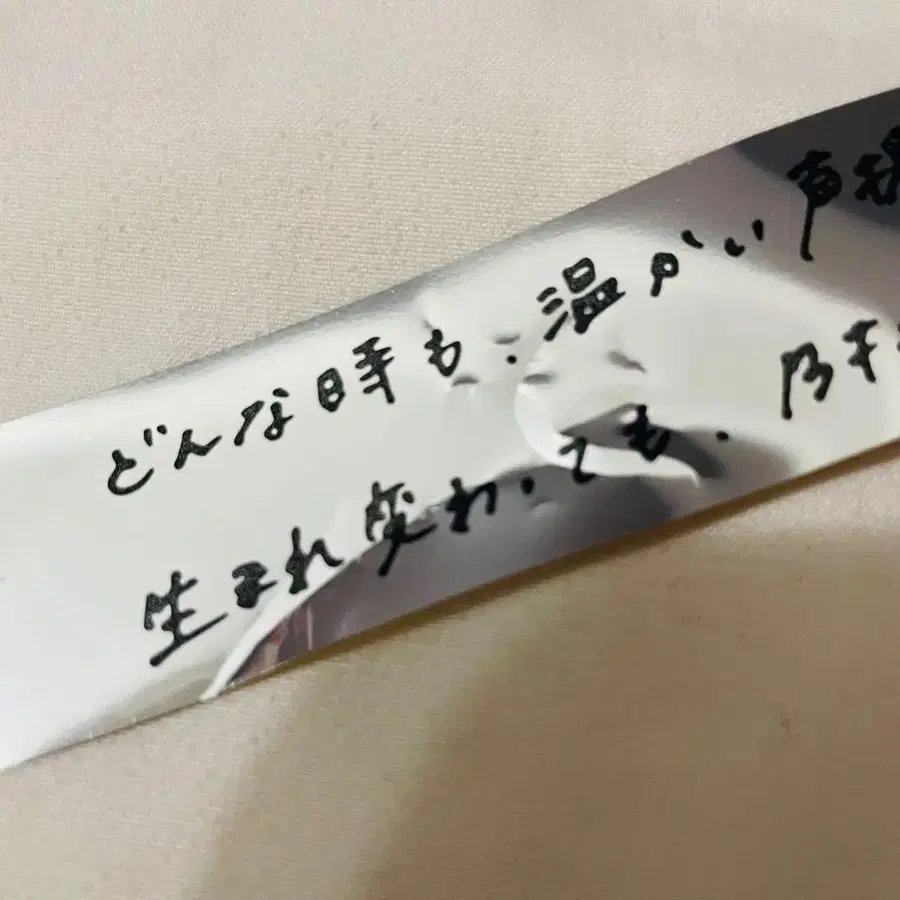 どんな時も、温かい声援
生まれ変わっても、乃木